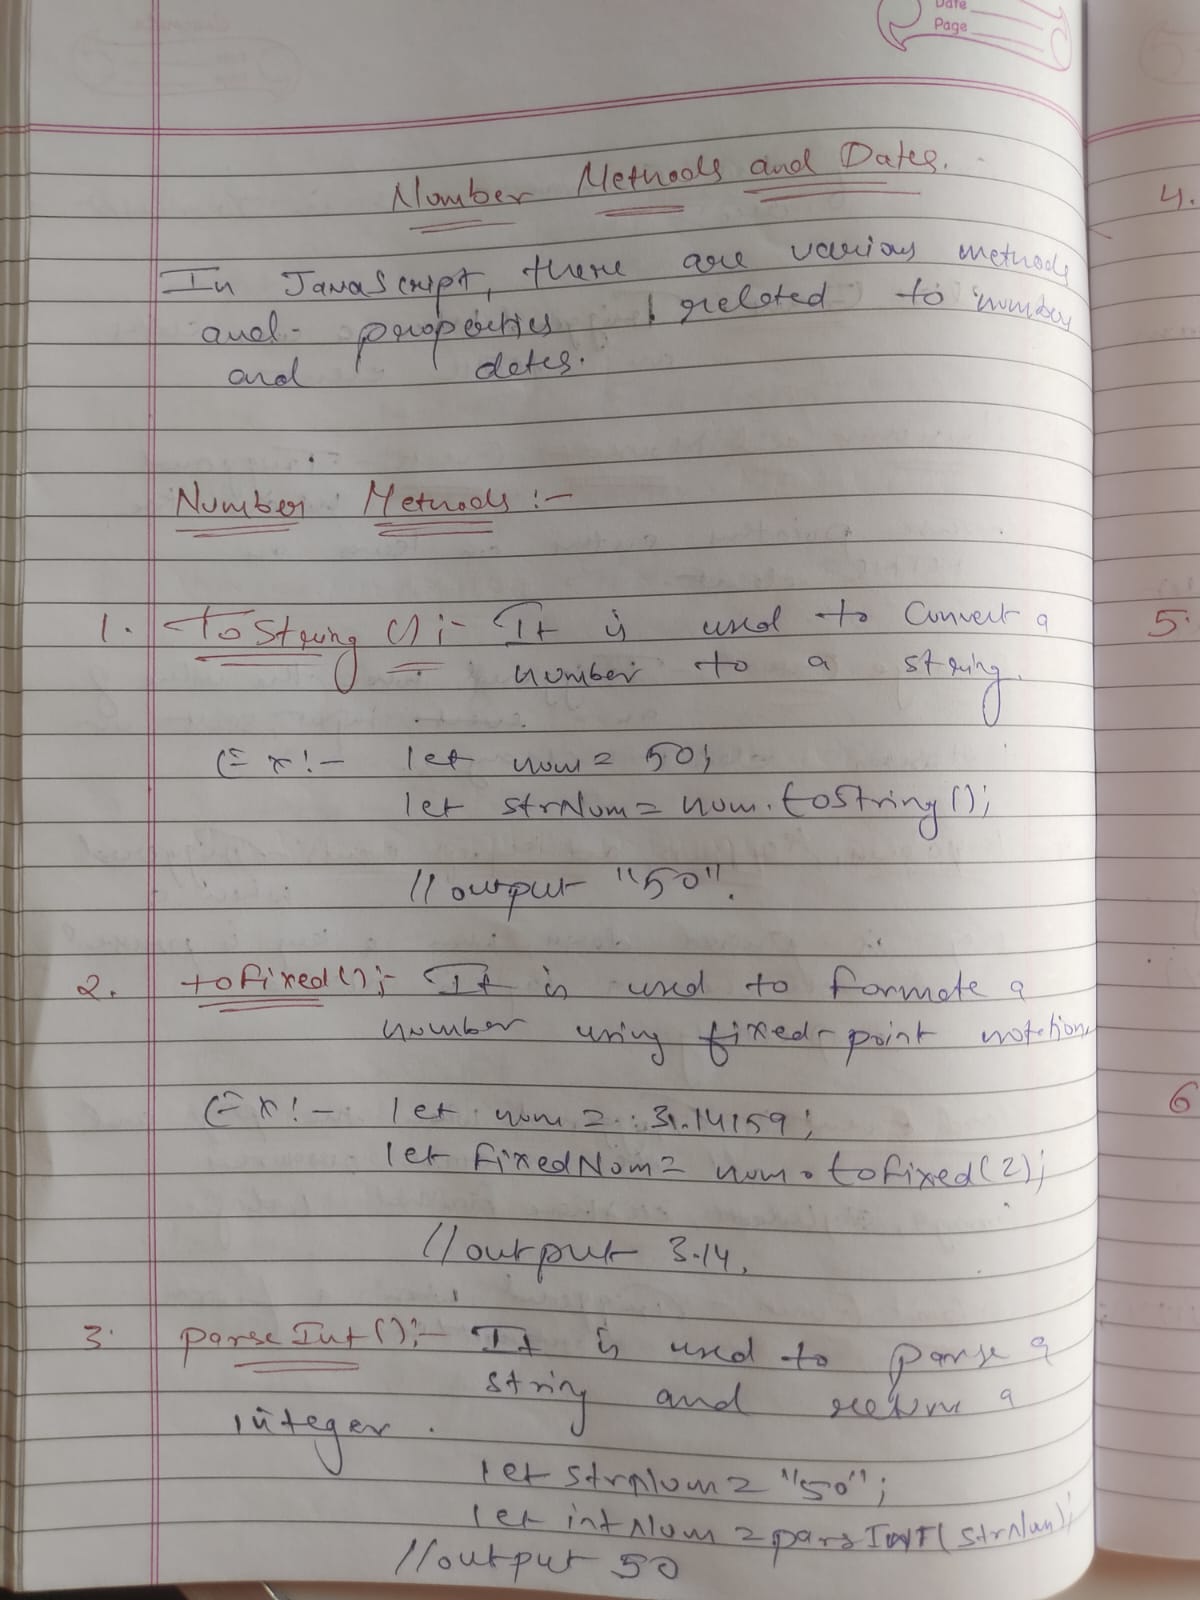 Date
Page
Number Methods and Dates.
In JavaScript, there are various methods
and properties related to number
and dates.
Number Methods :-
1. ToString () :- It is used to Convert a
number to a string.
Ex :- let num = 50;
let strNum = num.toString();
// output "50".
2. toFixed() :- It is used to formate a
number using fixed-point notation
Ex :- let num = 3.14159;
let fixedNum = num.toFixed(2);
// output 3.14.
3. parseInt() :- It is used to parse a
string and return a
integer.
let strNum = "50";
let intNum = parsINT(strNum);
// output 50
4.
5.
6